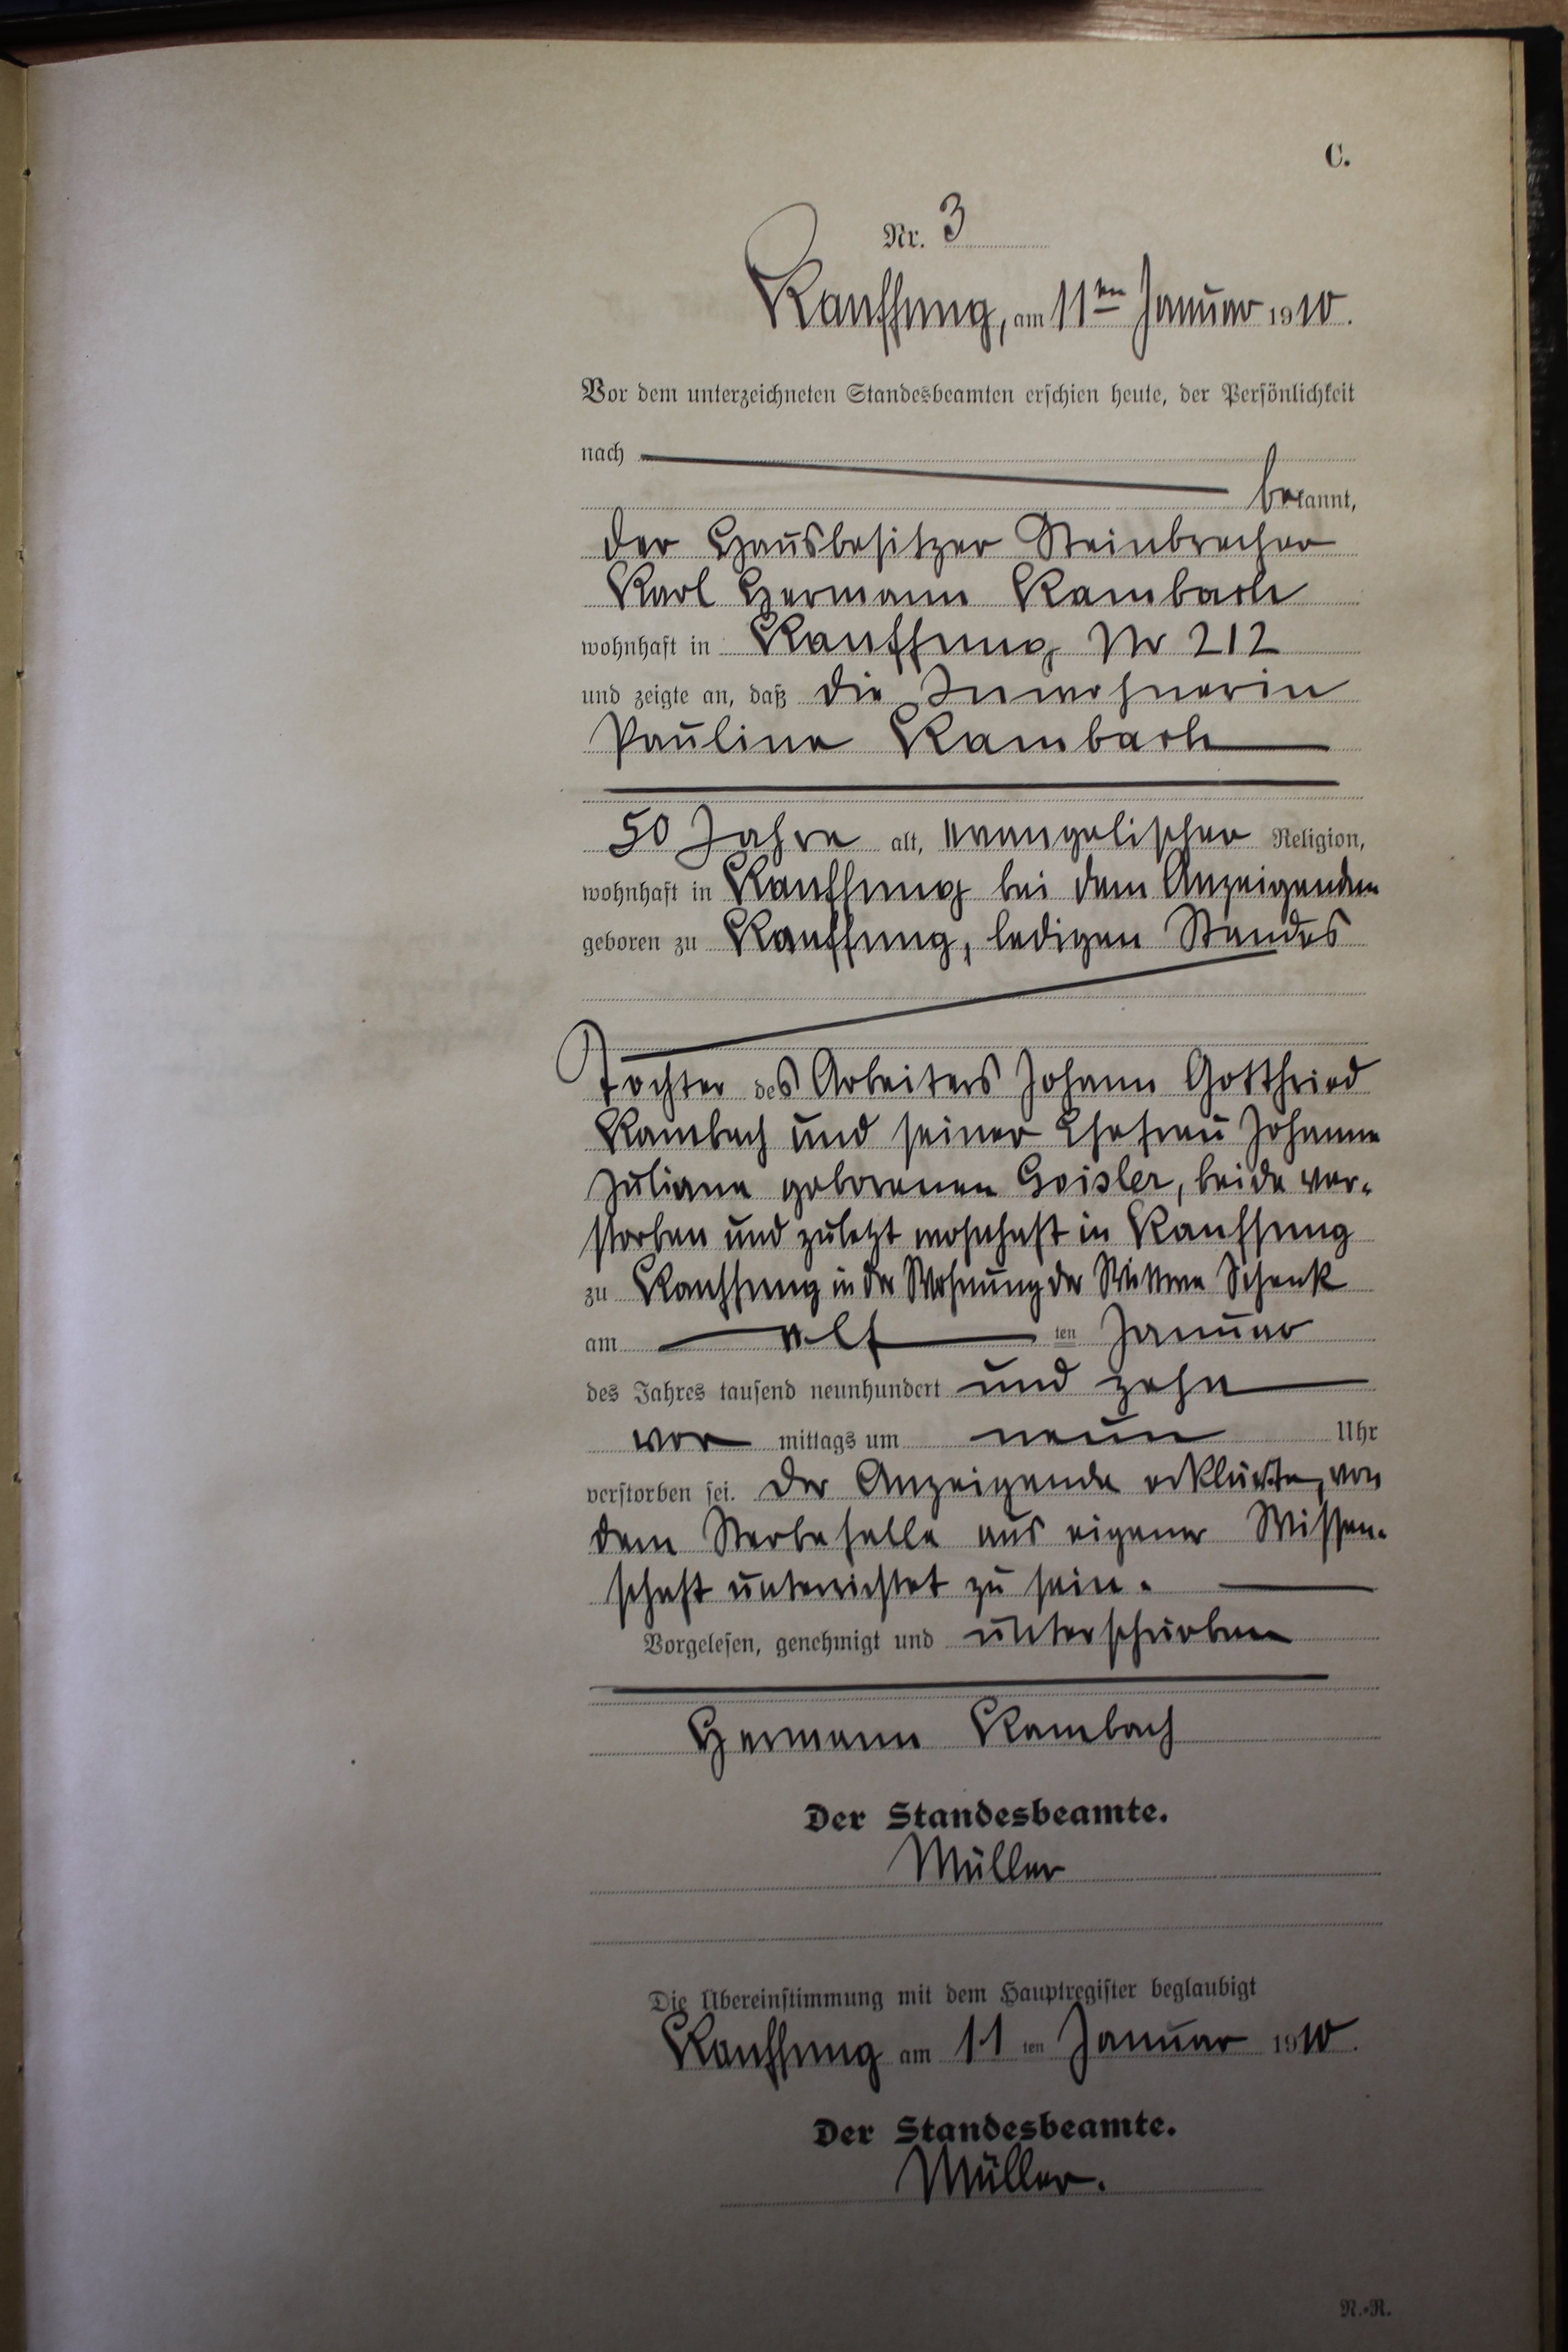 C.
Nr. 3
Kauffung, am 11ten Januar 1910.
Vor dem unterzeichneten Standesbeamten erschien heute, der Persönlichkeit
nach
bekannt,
der Hausbesitzer Steinbrecher
Karl Hermann Kambach
wohnhaft in Kauffung Nr 212
und zeigte an, daß die Inwohnerin
Pauline Kambach
50 Jahre alt, evangelischer Religion,
wohnhaft in Kauffung bei dem Anzeigenden
geboren zu Kauffung, ledigen Standes
Tochter des Arbeiters Johann Gottfried
Kambach und seiner Ehefrau Johanne
Juliane geborenen Geisler, beide ver-
storben und zuletzt wohnhaft in Kauffung
zu Kauffung in der Wohnung der Wittwe Schenk
am elf ten Januar
des Jahres tausend neunhundert und zehn
vor mittags um neun Uhr
verstorben sei. Der Anzeigende erklärte, von
dem Sterbefalle aus eigener Wissen-
schaft unterrichtet zu sein.
Vorgelesen, genehmigt und unterschrieben
Hermann Kambach
Der Standesbeamte.
Müller
Die Übereinstimmung mit dem Hauptregister beglaubigt
Kauffung am 11 ten Januar 1910.
Der Standesbeamte.
Müller.
N.-R.